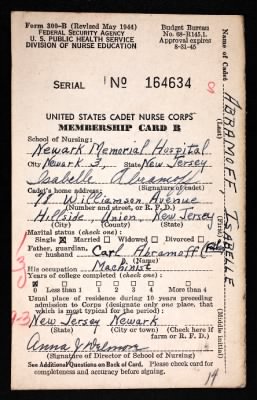 Form 300-B (Revised May 1944)
FEDERAL SECURITY AGENCY
U. S. PUBLIC HEALTH SERVICE
DIVISION OF NURSE EDUCATION
Budget Bureau
No. 68-R145.1.
Approval expires
8-31-45
SERIAL No 164634
UNITED STATES CADET NURSE CORPS
MEMBERSHIP CARD B
School of Nursing:
Newark Memorial Hospital
City Newark 3, State New Jersey
Isabelle Abramoff
Cadet's home address: (Signature of cadet)
98 Williamson Avenue
(Number and street, or R. F. D.)
Hillside, Union, New Jersey
(City) (County) (State)
Marital status (check one):
Single X Married Widowed Divorced
Father, guardian,
or husband Carl Abramoff
(Name)
His occupation Machinist
Years of college completed (check one):
X
0 Less than 1 1 2 3 4 More than 4
Usual place of residence during 10 years preceding
admission to Corps (designate only one place, that
which is most typical for the period):
New Jersey Newark
(State) (City or town) (Check here if
farm or R. F. D.)
Anna J.
(Signature of Director of School of Nursing)
See Additional Questions on Back of Card. Please check card for
completeness and accuracy before signing.
14
Name of Cadet ABRAMOFF, ISABELLE
(Last) (First) (Middle initial)